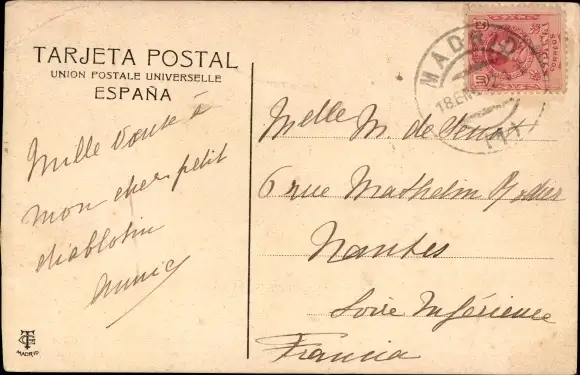 TARJETA POSTAL
UNION POSTALE UNIVERSELLE
ESPAÑA
MADRID
18 EN
Mille
à
mon cher petit
diablotin
Melle M. de
6 rue Mathelin Rodier
Nantes
Loire Inférieure
Francia
MADRID